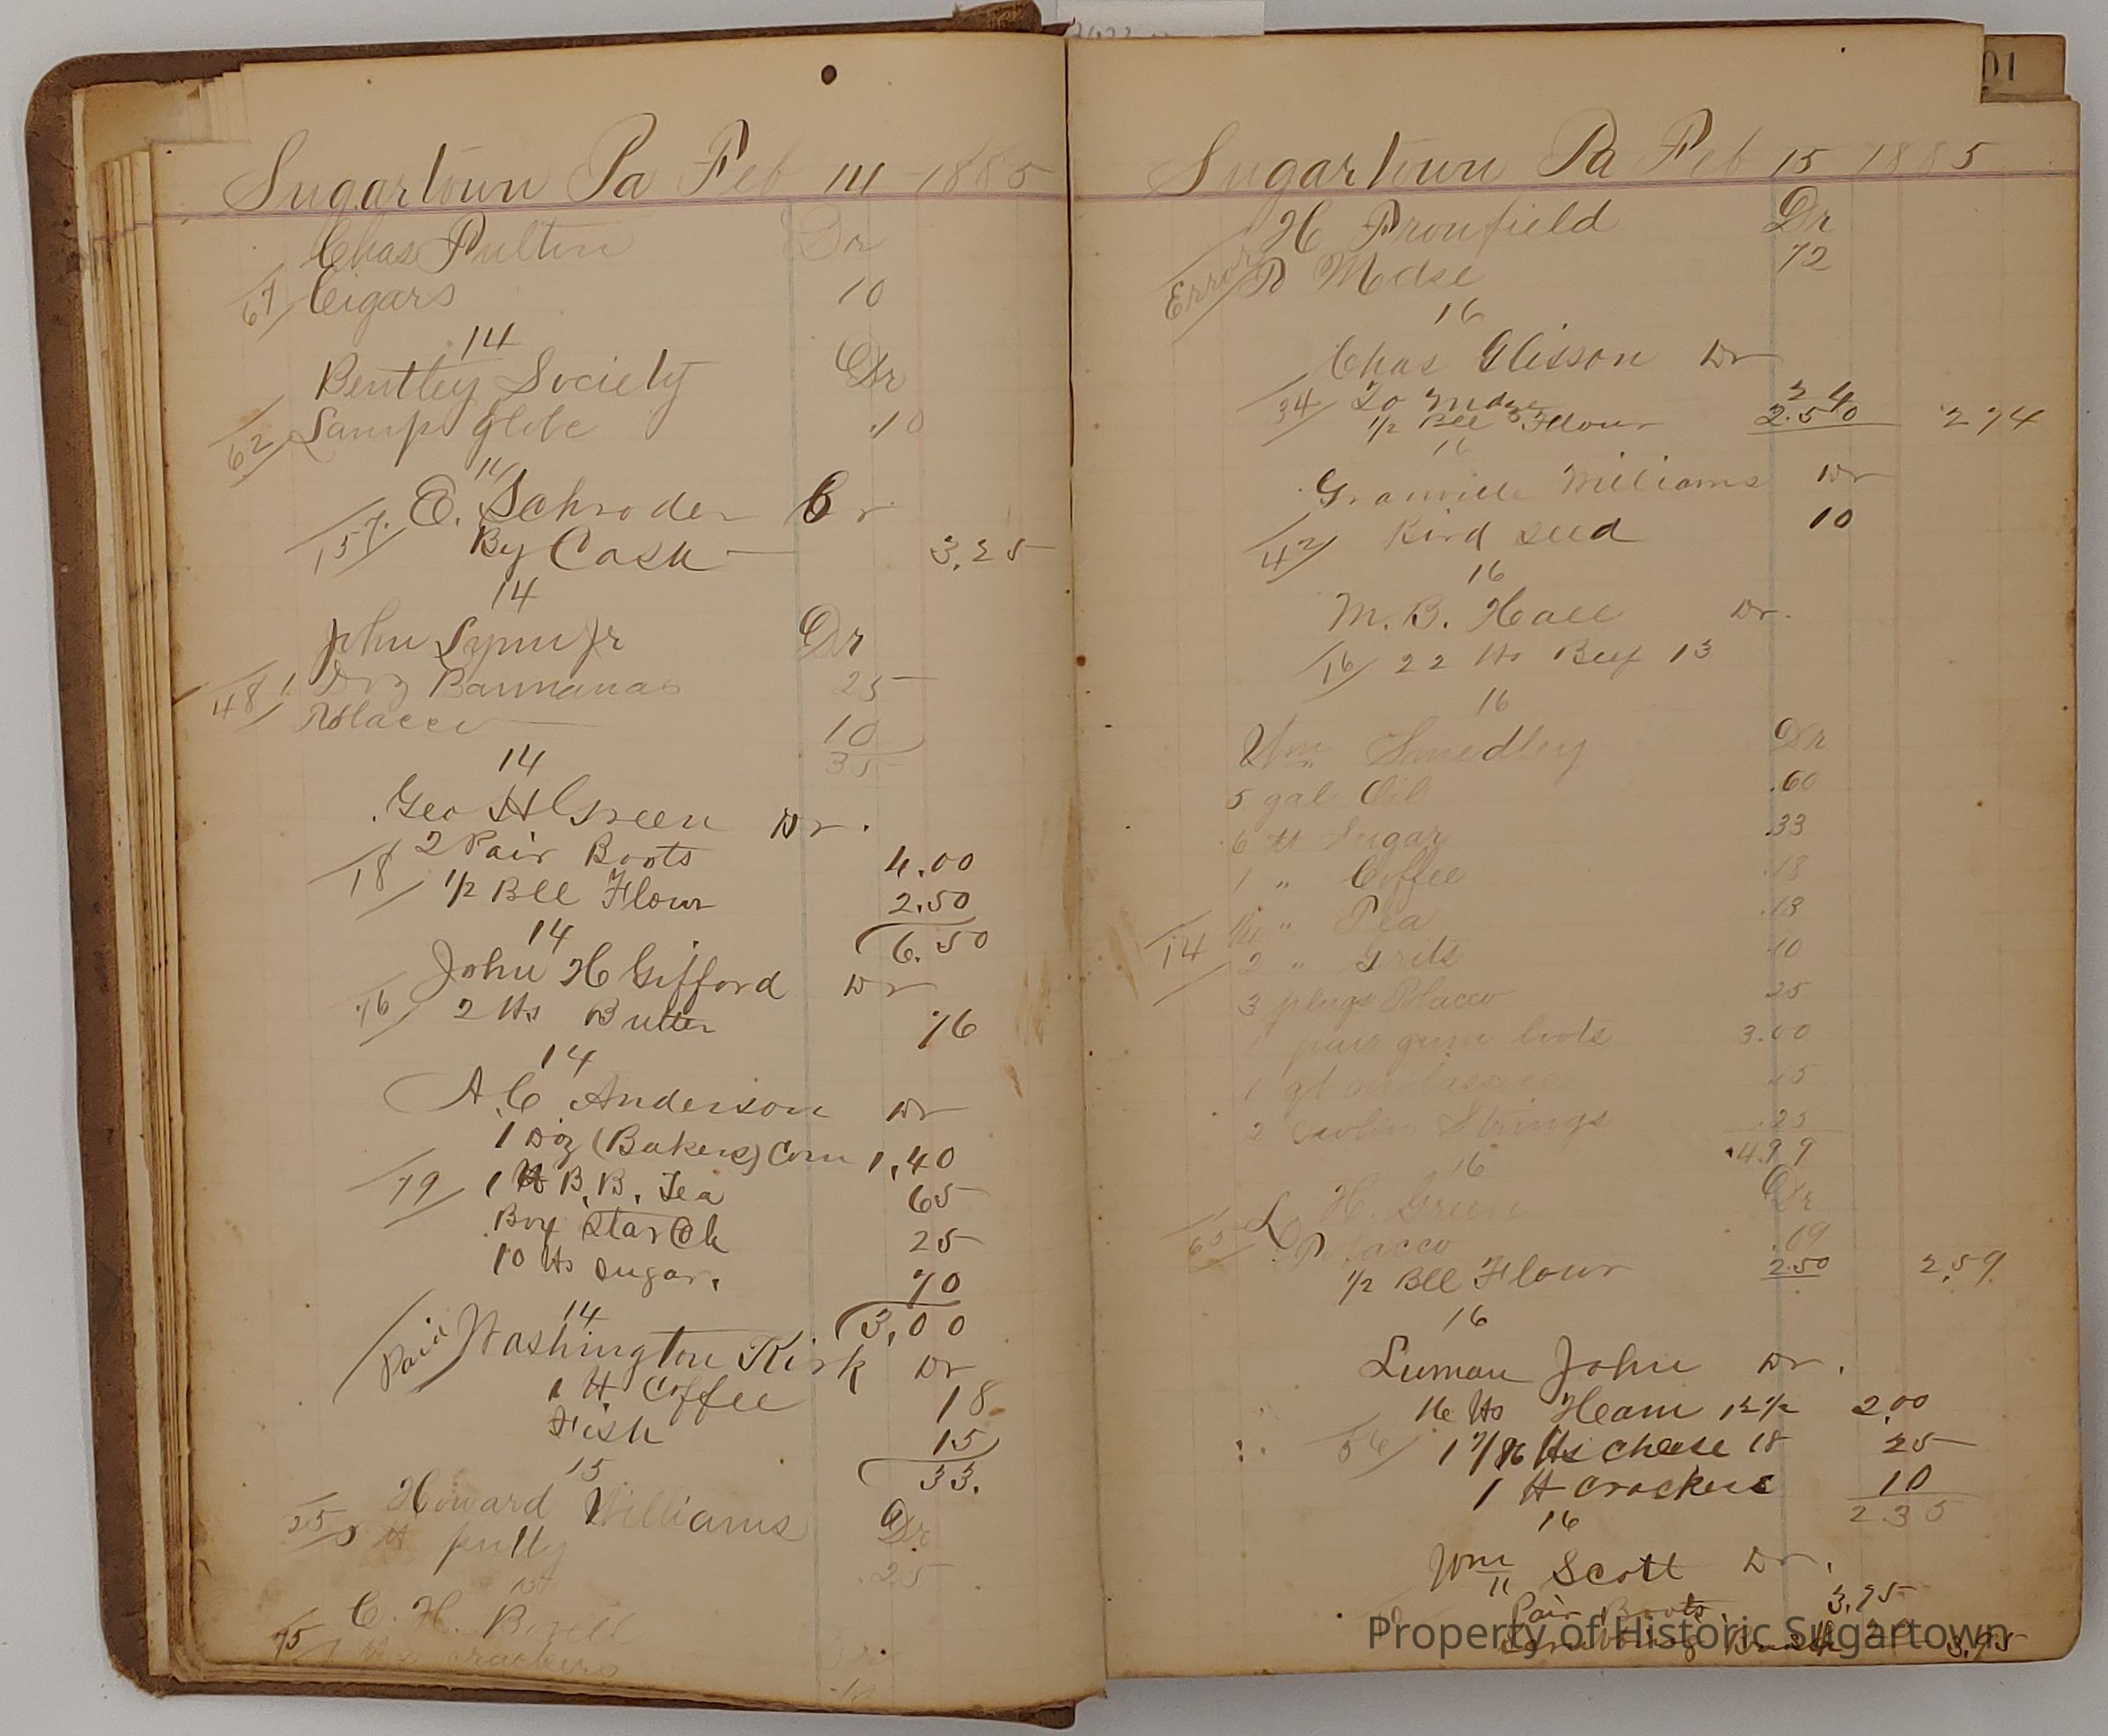 Sugartown Pa Feb 14 1885
Chas Fulton Dr
67 Cigars 10
14
Bentley Society Dr
62 Lamp globe .10
14
E. Schroder Cr
157 By Cash 3.25
14
John Lynn Jr Dr
48 1 Doz Bannanas 25
Tobacco 10
35
14
Geo H Green Dr.
18 2 Pair Boots 4.00
1/2 Bll Flour 2.50
6.50
14
John H Gifford Dr
76 2 lbs Butter 76
14
A C Anderson Dr
1 Doz (Bakers) Corn 1,40
79 1 lb B.B. Tea 65
Box Starch 25
10 lbs Sugar. 70
3,00
14
Paid Washington Kirk Dr
1 lb Coffee 18
Fish 15
33.
15
Howard Williams Dr
25 5 lb putty .25
15
C. H. Bozell Dr
75 lbs crackers .10
01
Sugartown Pa Feb 15 1885
H Pronfield Dr
Error To Mdse 72
16
Chas Glisson Dr
34 To Mdse 24
1/2 Bll Flour 2.50 2 74
16
Granville Williams Dr
42 Bird seed 10
16
M. B. Hall Dr.
16 22 lbs Beef 13
16
Wm Smedley Dr
5 gal Oil .60
6 lb Sugar .33
1 " Coffee .18
1/4 " Tea .13
14 2 " Grits .10
3 plugs Tobacco 25
1 pair gum boots 3.00
1 qt molasses .15
2 violin Strings .25
4.99
16
L H. Green Dr
65 Tobacco .09
1/2 Bll Flour 2.50 2,59
16
Luman John Dr.
16 lbs Ham 12 1/2 2,00
56 1 7/16 lbs cheese 18 25
1 lb crackers 10
2.35
16
Wm Scott Dr.
Pair Boots 3,75
Scrubbing Brush 20 3,95
Property of Historic Sugartown